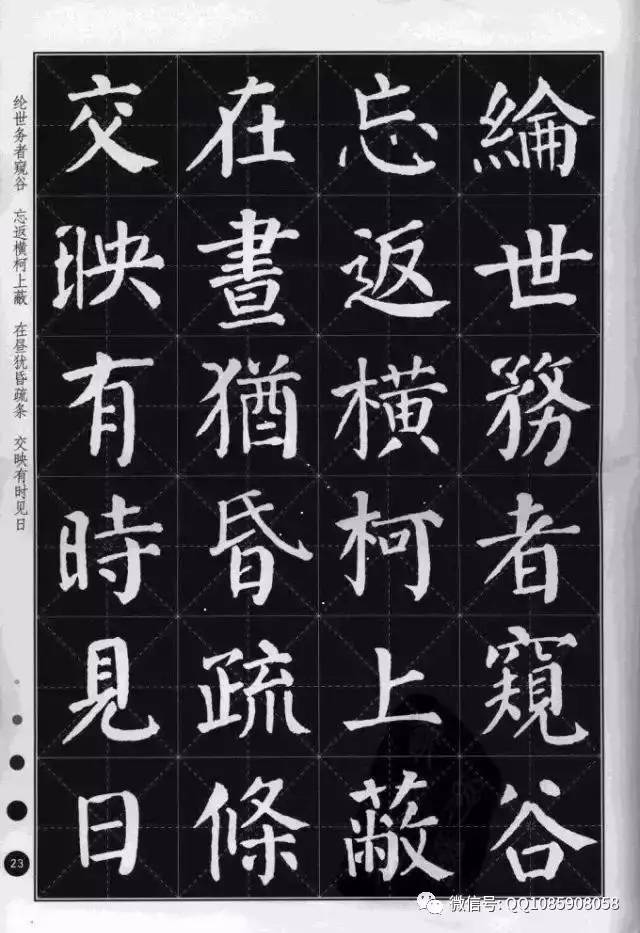 綸世務者窺谷
忘返橫柯上蔽
在晝猶昏疏條
交映有時見日
纶世务者窥谷 忘返横柯上蔽 在昼犹昏疏条 交映有时见日
23
微信号: QQ1085908058